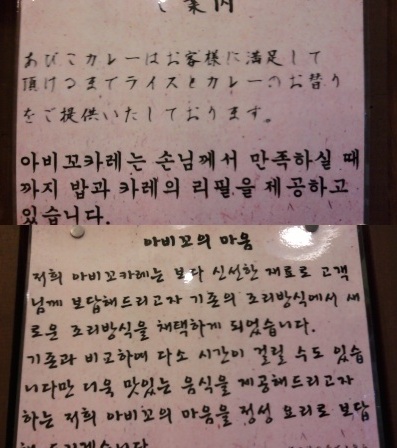 ご案内
あびこカレーはお客様に満足して
頂けるまでライスとカレーのお替り
をご提供いたしております。
아비꼬카레는 손님께서 만족하실 때
까지 밥과 카레의 리필을 제공하고
있습니다.
아비꼬의 마음
저희 아비꼬카레는 보다 신선한 재료로 고객
님께 보답해드리고자 기존의 조리방식에서 새
로운 조리방식을 채택하게 되었습니다.
기존과 비교하여 다소 시간이 걸릴 수도 있습
니다만 더욱 맛있는 음식을 제공해드리고자
하는 저희 아비꼬의 마음을 정성 요리로 보답
해 드리겠습니다